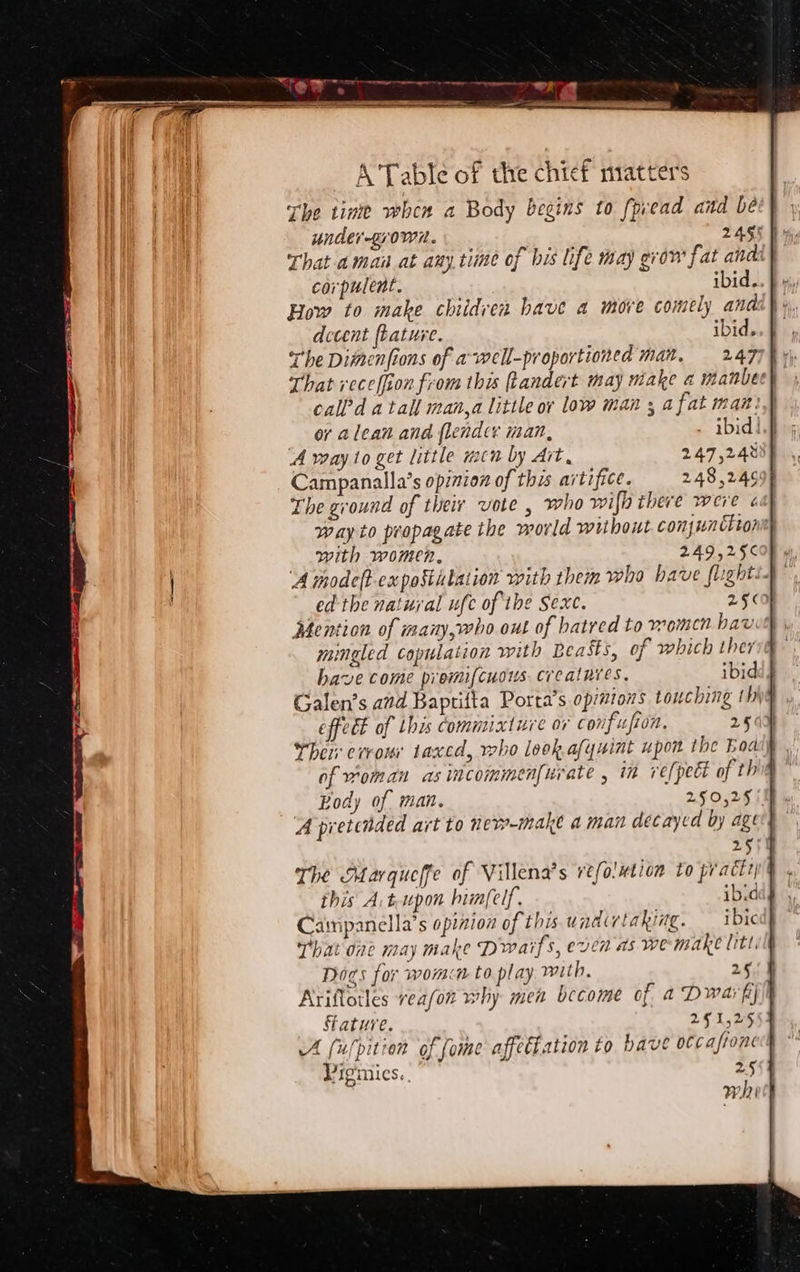 A Table of the chief matters
The time when a Body begins to ſpread and be
under-grown. 245
That a man at any time of his life may grow fat and
corpulent. ibid.
How to make children have a more comely and
decent ſtature. ibid.
The Dimenſions of a well-proportioned man. 247
That receſſion from this ſtandert may make a man be
call'd a tall man, a little or low man ; a fat man,
or a lean and ſlender man, ibid.
A way to get little men by Art, 247,248
Campanalla's opinion of this artifice. 248,249
The ground of their vote , who wiſh there were a
way to propagate the world without conjunction
with women. 249,250
A modeſt expoſtulation with them who have ſlight-
ed the natural uſe of the Sexe. 250
Mention of many, who out of hatred to women have
mingled copulation with Beaſts, of which there
have come promiſcuous creatures. ibid
Galen's and Baptiſta Porta's opinions touching the
effect of this commixture or confuſion. 250
Their errour taxed, who look aſquint upon the Body
of woman as incommenſurate , in reſpect of the
Body of man. 250,251
A pretended art to new-make a man decayed by age
251
The Marqueſſe of Villena's reſolution to practiſe
this Art upon himſelf. ibid
Campanella's opinion of this undertaking. ibid
That one may make Dwarfs, even as we make little
Dogs for women to play with. 25
Ariſtotles reaſon why men become of a Dwarfiſh
Stature. 251,25
A ſuſpition of ſome affectation to have occaſioned
Pigmies. 25
whi